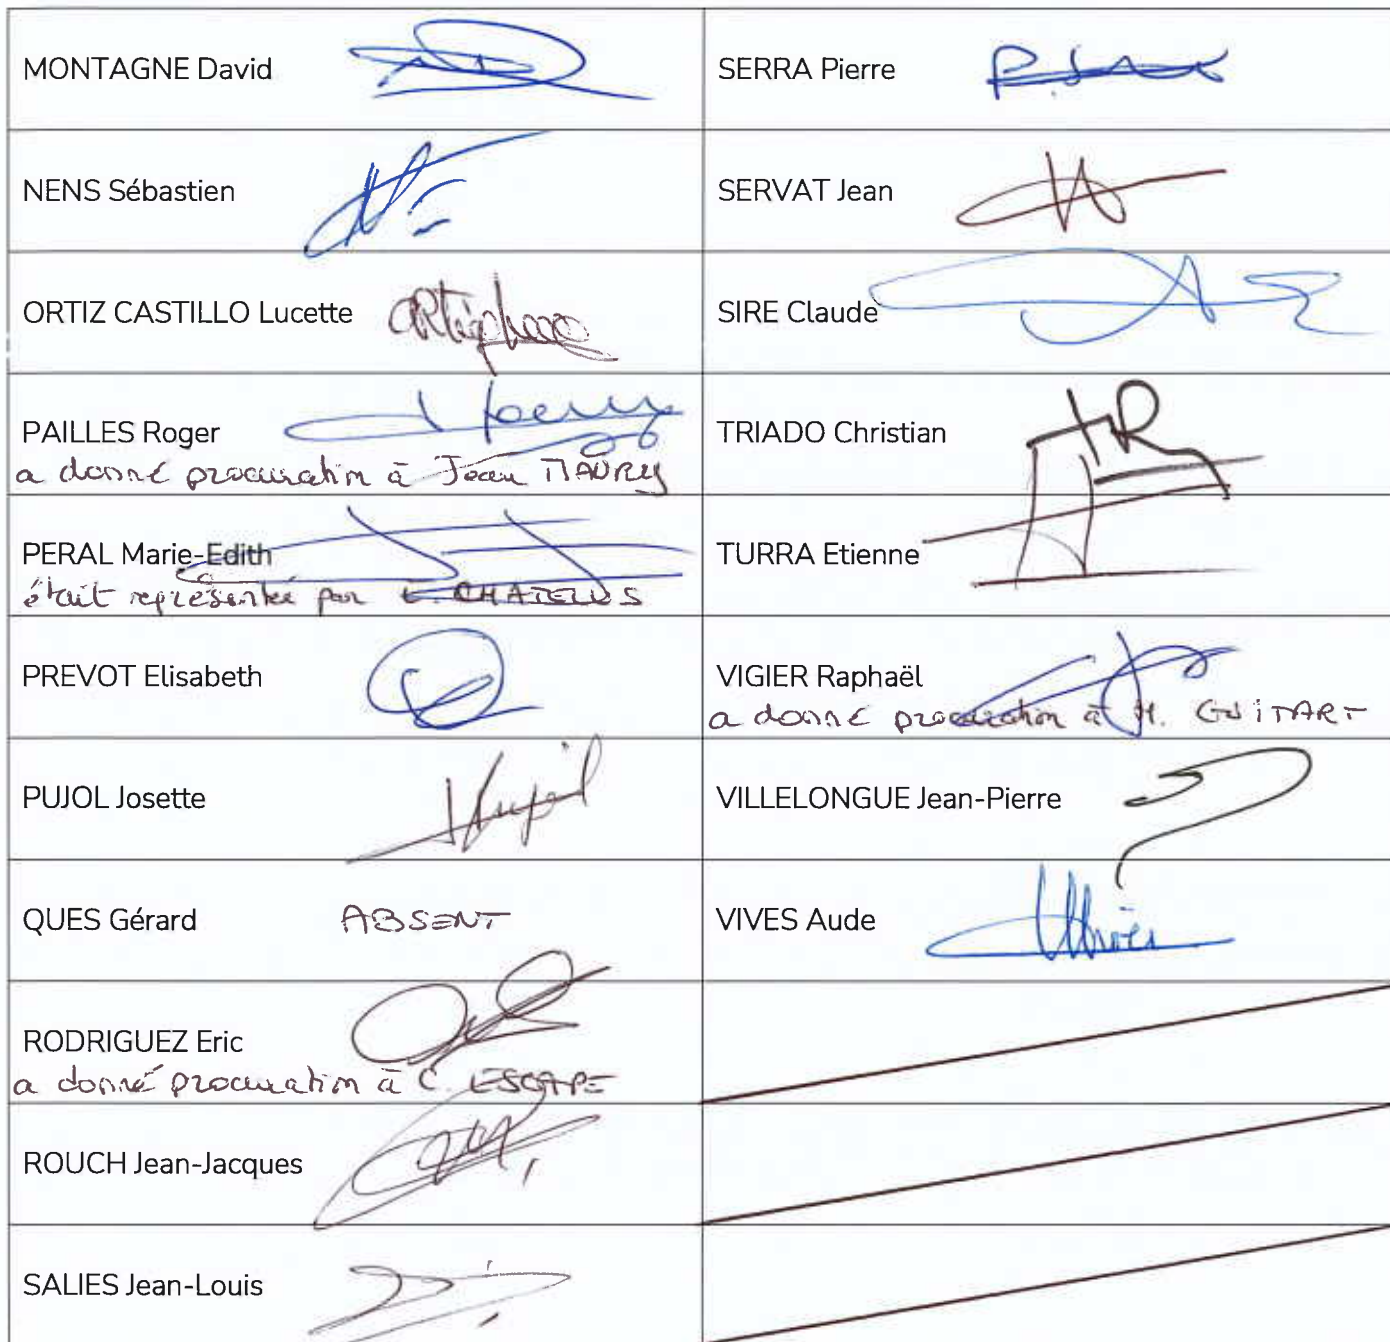 MONTAGNE David
SERRA Pierre
NENS Sébastien
SERVAT Jean
ORTIZ CASTILLO Lucette
SIRE Claude
PAILLES Roger
a donné procuration à Jean MAURY
TRIADO Christian
PERAL Marie-Edith
était représentée par E. CHATELUS
TURRA Etienne
PREVOT Elisabeth
VIGIER Raphaël
a donné procuration à H. GUITART
PUJOL Josette
VILLELONGUE Jean-Pierre
QUES Gérard ABSENT
VIVES Aude
RODRIGUEZ Eric
a donné procuration à C. ESCAPE
ROUCH Jean-Jacques
SALIES Jean-Louis